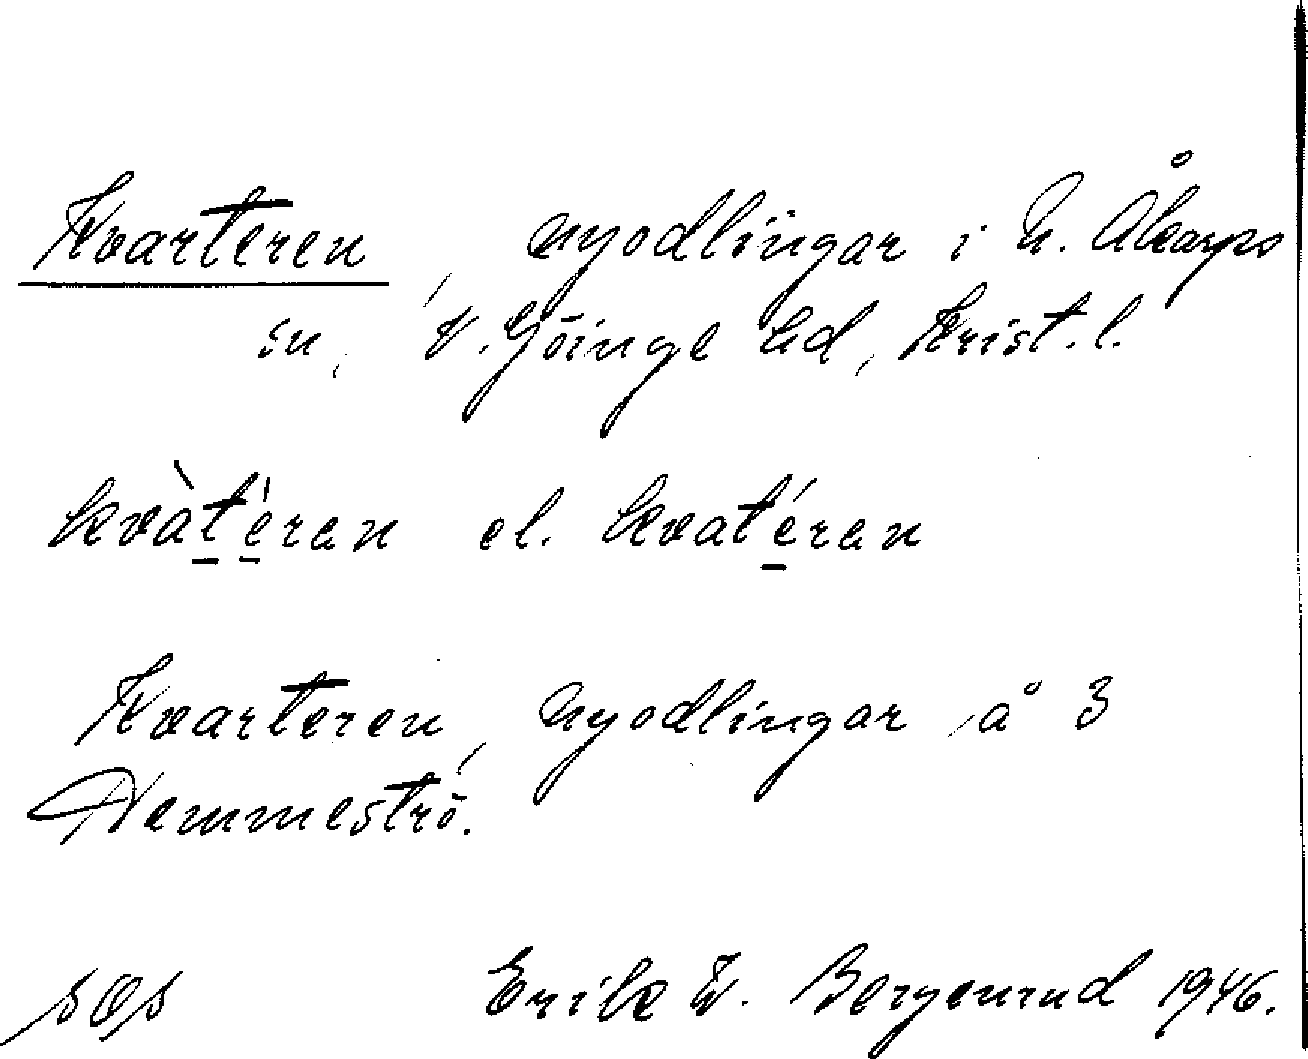 Kvarteren, nyodlingar i N. Åkarps
sn, V. Göinge hd, Krist. l.
kvàt̲è̲ran el. kvaté̲ran
Kvarteren, nyodlingar å 3
Hemmeströ.
Erik W. Bergenrud 1946.